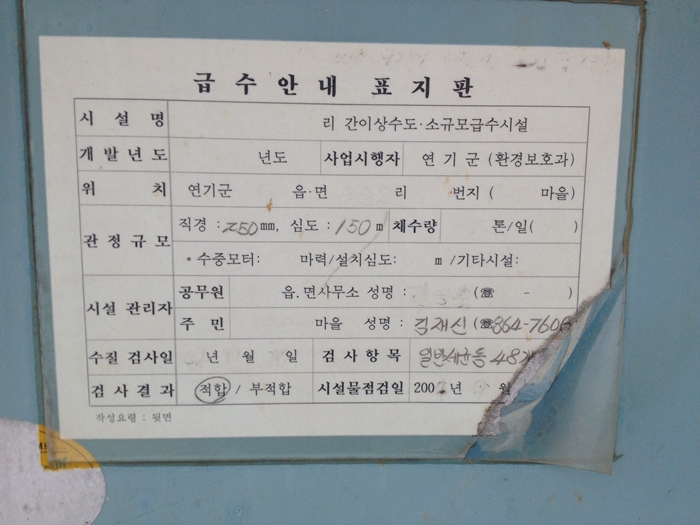 급수안내 표지판
시설명 리 간이상수도·소규모급수시설
개발년도 년도 사업시행자 연기군 (환경보호과)
위치 연기군 읍·면 리 번지 ( 마을)
관정규모 직경 : 250 mm, 심도 : 150 m 채수량 톤/일( )
• 수중모터: 마력/설치심도: m /기타시설:
시설 관리자 공무원 읍.면사무소 성명 : (☎ - )
주민 마을 성명 : 김재신 (☎864-7606
수질 검사일 년 월 일 검사항목 일반세균등 48개
검사결과 적합 / 부적합 시설물점검일 200 년 월
작성요령 : 뒷면